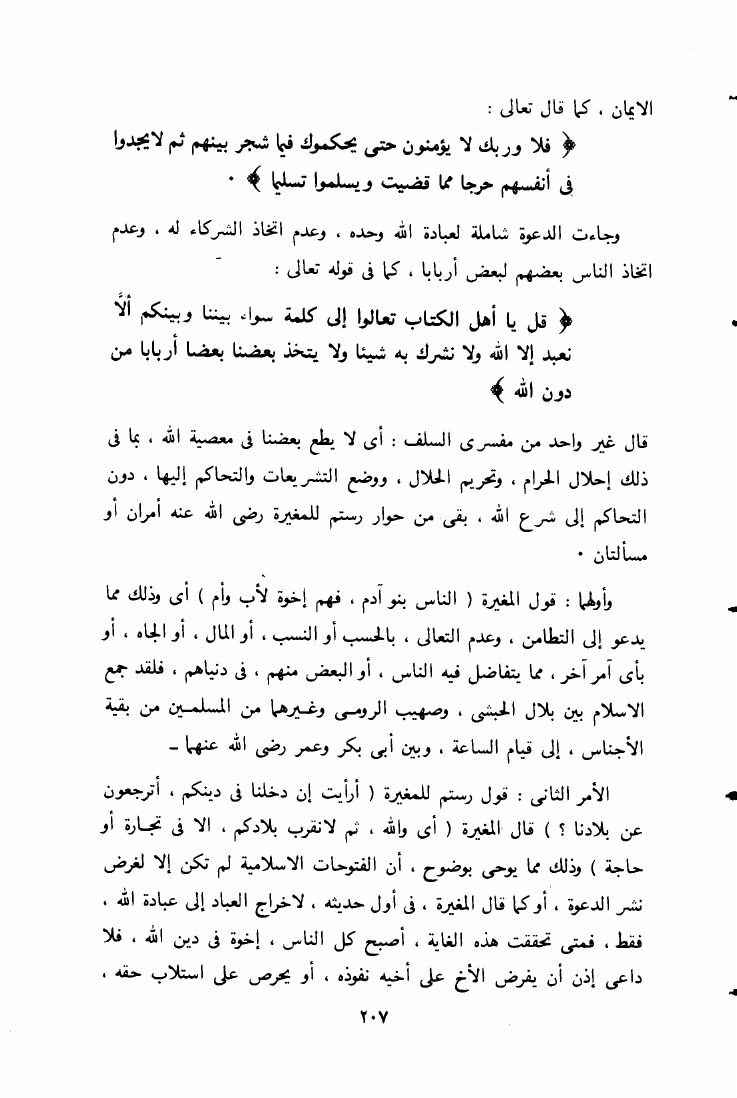 الايمان ، كما قال تعالى :
﴿ فلا وربك لا يؤمنون حتى يحكموك فيما شجر بينهم ثم لايجدوا
فى أنفسهم حرجا مما قضيت ويسلموا تسليما ﴾ ٠
وجاءت الدعوة شاملة لعبادة الله وحده ، وعدم اتخاذ الشركاء له ، وعدم
اتخاذ الناس بعضهم لبعض أربابا ، كما فى قوله تعالى :
﴿ قل يا أهل الكتاب تعالوا إلى كلمة سواء بيننا وبينكم ألاَّ
نعبد إلا الله ولا نشرك به شيئا ولا يتخذ بعضنا بعضا أربابا من
دون الله ﴾
قال غير واحد من مفسرى السلف : أى لا يطع بعضنا فى معصية الله ، بما فى
ذلك إحلال الحرام ، وتحريم الحلال ، ووضع التشريعات والتحاكم إليها ، دون
التحاكم إلى شرع الله ، بقى من حوار رستم للمغيرة رضى الله عنه أمران أو
مسألتان ٠
وأولهما : قول المغيرة ( الناس بنو آدم ، فهم إخوة لأب وأم ) أى وذلك مما
يدعو إلى التطامن ، وعدم التعالى ، بالحسب أو النسب ، أو المال ، أو الجاه ، أو
بأى أمر آخر ، مما يتفاضل فيه الناس ، أو البعض منهم ، فى دنياهم ، فلقد جمع
الاسلام بين بلال الحبشى ، وصهيب الرومى وغيرهما من المسلمين من بقية
الأجناس ، إلى قيام الساعة ، وبين أبى بكر وعمر رضى الله عنهما ـ
الأمر الثانى : قول رستم للمغيرة ( أرأيت إن دخلنا فى دينكم ، أترجعون
عن بلادنا ؟ ) قال المغيرة ( أى والله ، ثم لانقرب بلادكم ، الا فى تجارة أو
حاجة ) وذلك مما يوحى بوضوح ، أن الفتوحات الاسلامية لم تكن إلا لغرض
نشر الدعوة ، أو كما قال المغيرة ، فى أول حديثه ، لاخراج العباد إلى عبادة الله ،
فقط ، فمتى تحققت هذه الغاية ، أصبح كل الناس ، إخوة فى دين الله ، فلا
داعى إذن أن يفرض الأخ على أخيه نفوذه ، أو يحرص على استلاب حقه ،
٢٠٧